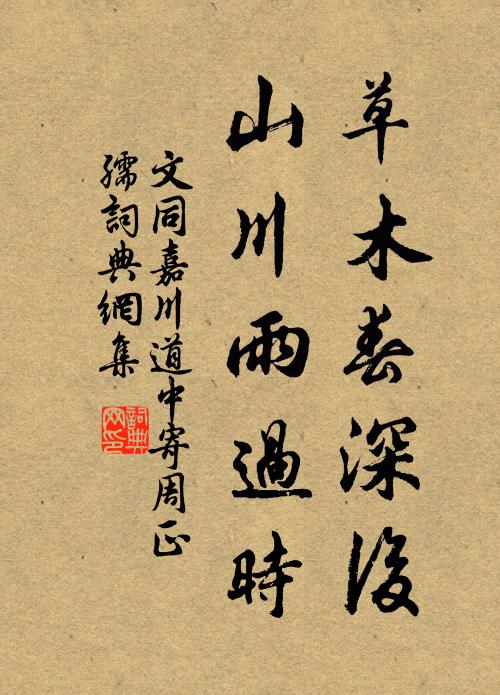 草木春深後
山川雨過時
文同嘉川道中寄周正
孺詞典網集
詞典
网印